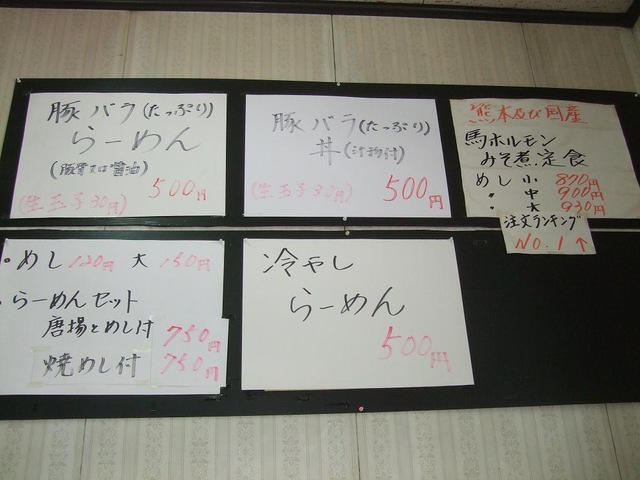 豚バラ(たっぷり)
らーめん
(豚骨又は醤油)
(生玉子30円) 500円
豚バラ(たっぷり)
丼(汁物付)
(生玉子30円) 500円
熊本及び国産
馬ホルモン
みそ煮定食
めし 小 870円
〃 中 900円
〃 大 930円
注文ランキング
NO.1↑
・めし 120円 大 150円
・らーめんセット
唐揚とめし付 750円
焼めし付 750円
冷やし
らーめん
500円